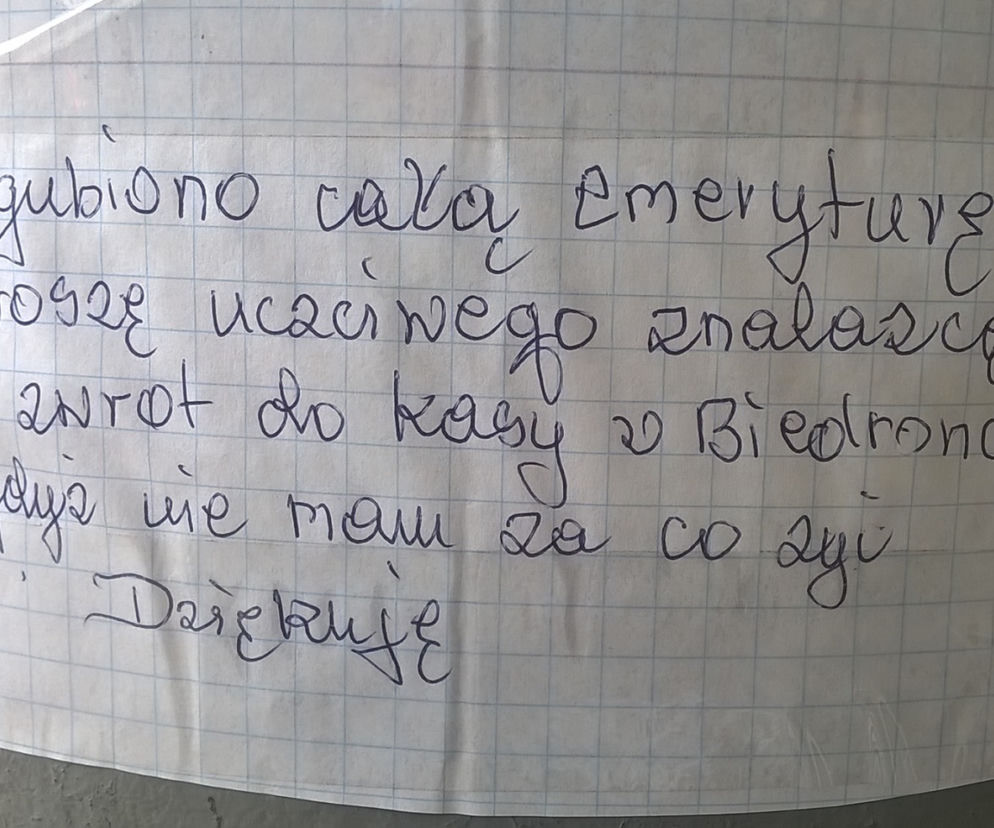 gubiono całą emeryturę
oszę uczciwego znalazcę
zwrot do kasy w Biedron
dyż nie mam za co żyć
Dziękuję